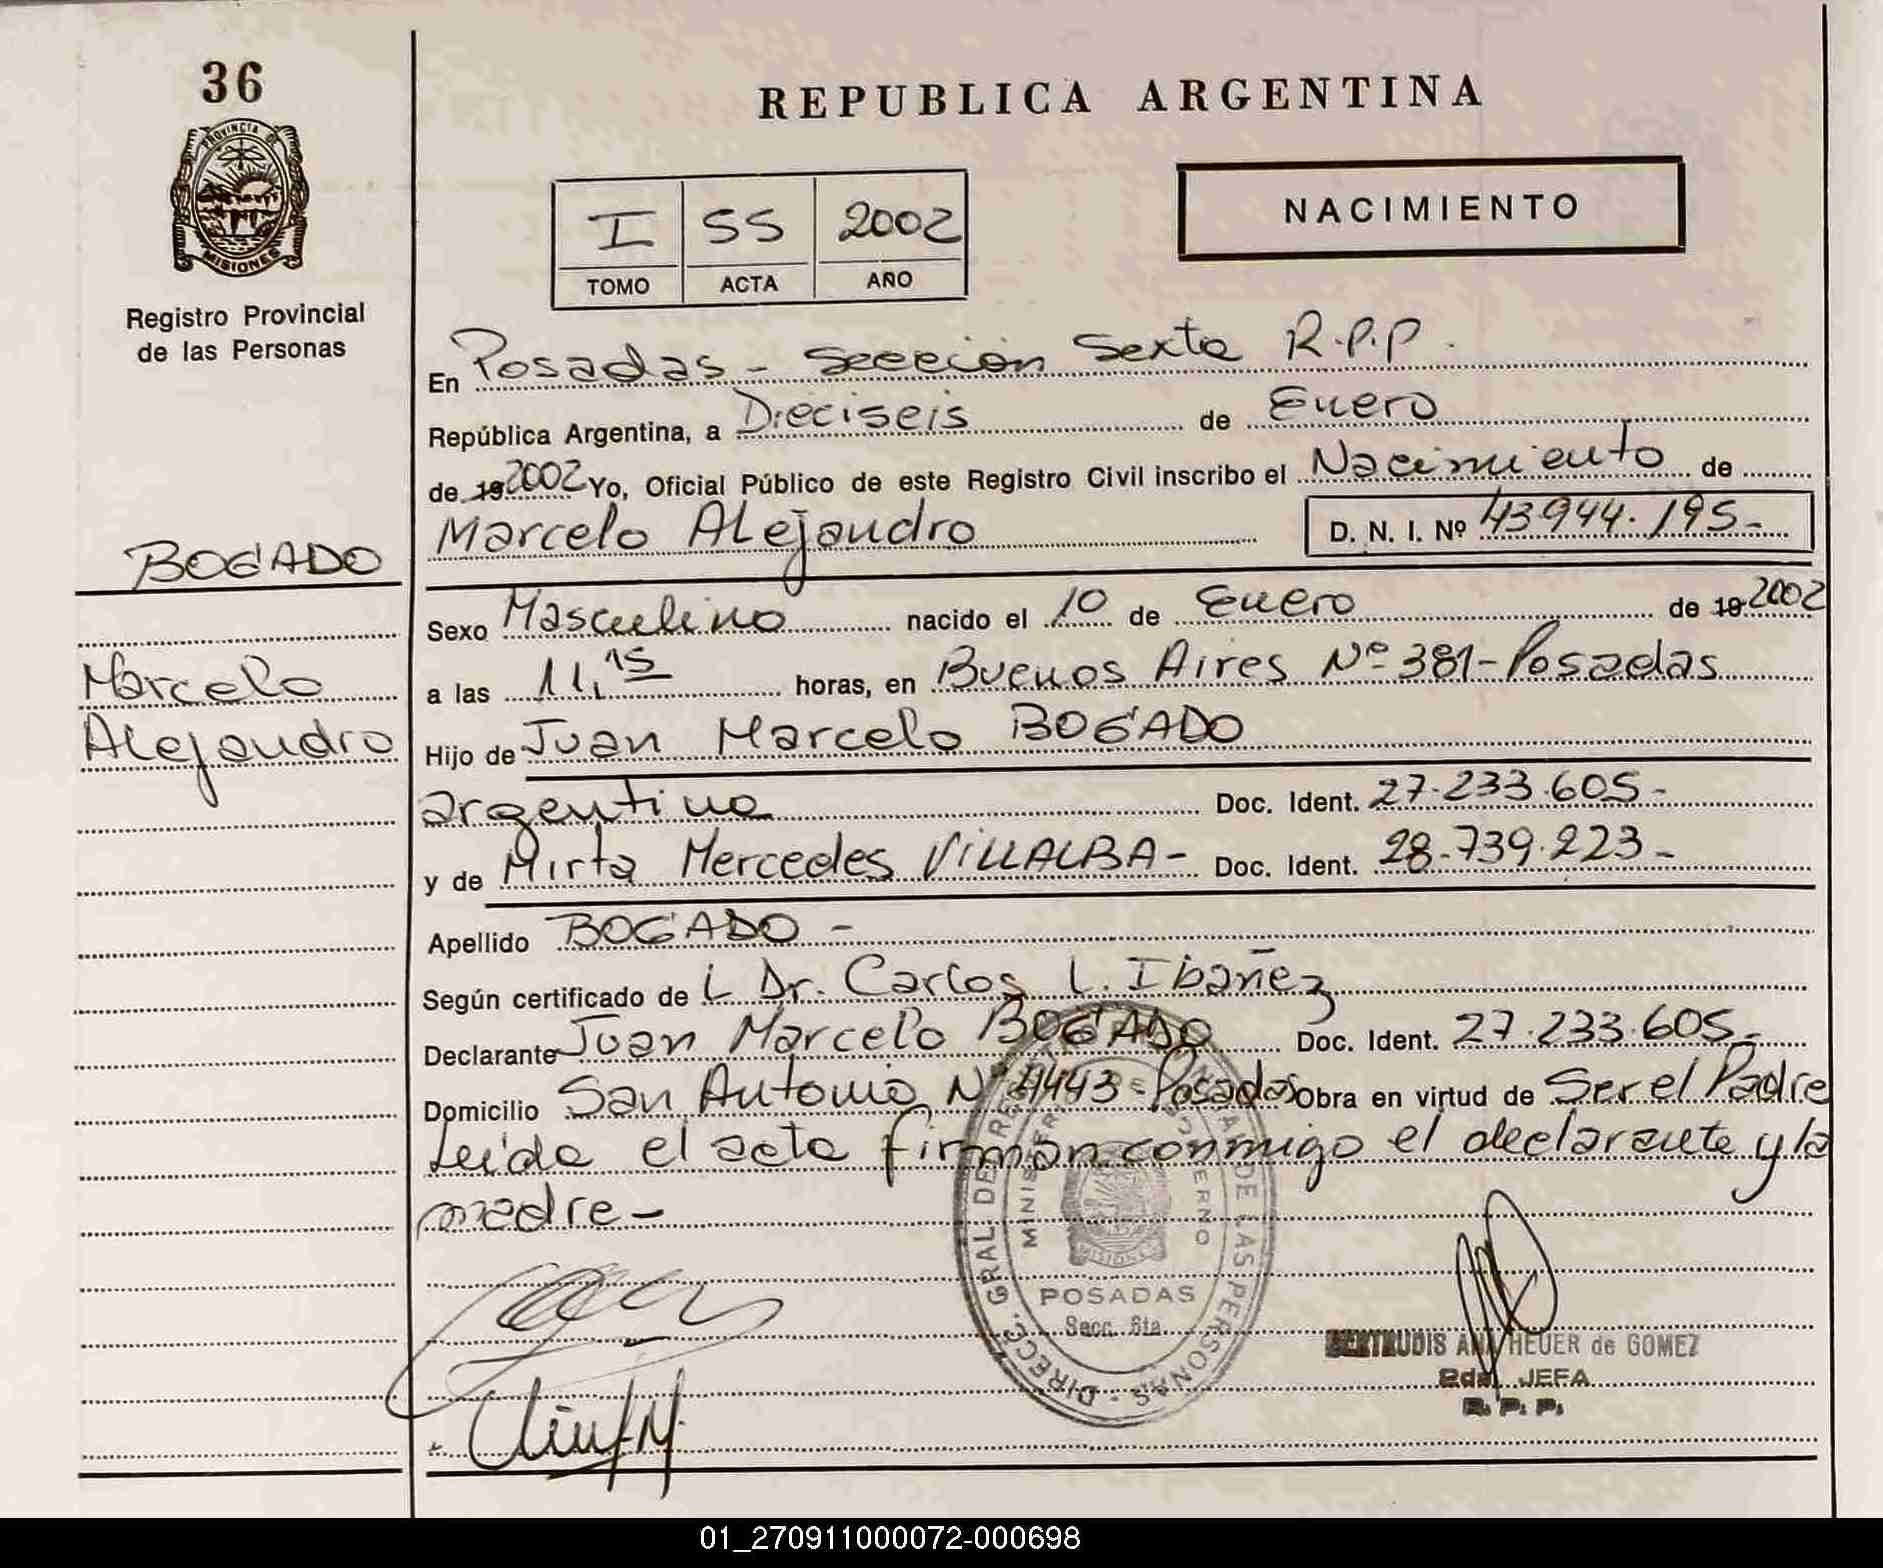 36
PROVINCIA DE
MISIONES
Registro Provincial
de las Personas
BOGADO
Marcelo
Alejandro
REPUBLICA ARGENTINA
I 55 2002
TOMO ACTA AÑO
NACIMIENTO
En Posadas - Sección Sexta R.P.P.
República Argentina, a Dieciseis de Enero
de 19 2002 Yo, Oficial Público de este Registro Civil inscribo el Nacimiento de
Marcelo Alejandro D. N. I. Nº 43.944.195-
Sexo Masculino nacido el 10 de Enero de 19 2002
a las 11,15 horas, en Buenos Aires Nº 381 - Posadas
Hijo de Juan Marcelo BOGADO
argentino Doc. Ident. 27.233.605-
y de Mirta Mercedes VILLALBA - Doc. Ident. 28.739.223-
Apellido BOGADO -
Según certificado de L Dr. Carlos L. Ibañez
Declarante Juan Marcelo BOGADO Doc. Ident. 27.233.605-
Domicilio San Antonio Nº 4443 - Posadas Obra en virtud de Ser el Padre
Leida el acta firman conmigo el declarante y la
madre -
DIRECC. GRAL DE REG. DE LAS PERSONAS
MISIONES
POSADAS
Secc. 6ta.
GERTRUDIS ANA HEUER de GOMEZ
2da. JEFA
R. P. P.
01_270911000072-000698